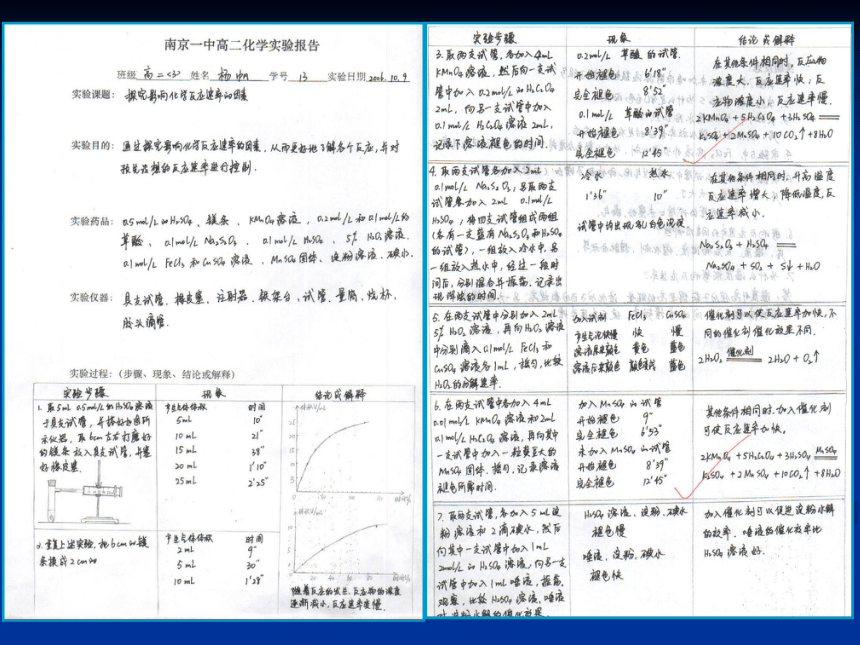 南京一中高二化学实验报告
班级 高二<3> 姓名 杨帆 学号 13 实验日期 2006.10.9
实验课题: 探究影响化学反应速率的因素
实验目的: 通过探究影响化学反应速率的因素,从而更好地了解各个反应,并对
反应速率进行控制.
实验药品: 0.5mol/L的H₂SO₄、镁条、KMnO₄溶液、0.2mol/L和0.1mol/L的
草酸、0.1mol/L Na₂S₂O₃、0.1mol/L H₂SO₄、5% H₂O₂溶液、
0.1mol/L FeCl₃和CuSO₄溶液、MnSO₄固体、淀粉溶液、碘水.
实验仪器: 具支试管、橡皮塞、注射器、铁架台、试管、量筒、烧杯、
胶头滴管.
实验过程:(步骤、现象、结论或解释)
实验步骤 现象 结论或解释
1. 取5mL 0.5mol/L的H₂SO₄溶液
于具支试管,并搭好如图所
示仪器,取6cm左右打磨好
的镁条放入具支试管,并塞
好橡皮塞.
产生气体体积 时间
5mL 10"
10 mL 21"
15 mL 38"
20 mL 1'10"
25 mL 2'25"
2. 重复上述实验,把6cm的镁
条换成2cm的
产生气体体积 时间
2mL 9"
5 mL 30"
10 mL 1'28"
随着反应的发生,反应物的浓度
逐渐减小,反应速率变慢.
实验步骤 现象 结论或解释
3. 取两支试管,各加入4mL
KMnO₄溶液,然后向一支试
管中加入0.2mol/L的H₂C₂O₄
2mL,向另一支试管中加入
0.1mol/L H₂C₂O₄溶液2mL,
记录下溶液褪色的时间.
0.2mol/L 草酸的试管.
开始褪色 6'18"
完全褪色 8'52"
0.1mol/L 草酸的试管
开始褪色 8'39"
完全褪色 12'45"
在其他条件相同时,反应物
浓度大,反应速率快;反
应物浓度小,反应速率慢.
2KMnO₄+5H₂C₂O₄+3H₂SO₄ ══
K₂SO₄+2MnSO₄+10CO₂↑+8H₂O
4. 取两支试管各加入2mL
0.1mol/L Na₂S₂O₃,另取两支
试管各加入2mL 0.1mol/L
H₂SO₄,将四支试管组成两组
(各有一支盛有Na₂S₂O₃和H₂SO₄
的试管),一组放入冷水中,另
一组放入热水中,经过一段时
间后,分别混合并振荡,记录出
现浑浊的时间.
冷水 热水
1'36" 10"
试管中均出现
在其他条件相同时,升高温度
反应速率增大,降低温度,反
应速率减小.
Na₂S₂O₃+H₂SO₄ ══
Na₂SO₄+SO₂+S↓+H₂O
5. 在两支试管中分别加入2mL
5% H₂O₂溶液,再向H₂O₂溶液
中分别滴入0.1mol/L FeCl₃和
CuSO₄溶液各1mL,摇匀,比较
H₂O₂的分解速率.
加入试剂 FeCl₃ CuSO₄
产生气泡快慢 快 慢
溶液原来颜色 黄色 蓝色
溶液后来颜色 蓝色
催化剂可以使反应速率加快,不
同的催化剂催化效果不同.
2H₂O₂ 催化剂══ 2H₂O+O₂↑
6. 在两支试管中各加入4mL
0.01mol/L KMnO₄溶液和2mL
0.1mol/L H₂C₂O₄溶液,再向其中
一支试管中加入一粒黄豆大的
MnSO₄固体,摇匀,记录溶液
褪色所需时间.
加入MnSO₄的试管
开始褪色 9"
完全褪色 6'53"
未加入MnSO₄的试管
开始褪色 8'39"
完全褪色 12'45"
其他条件相同时,加入催化剂
可使反应速率加快.
2KMnO₄+5H₂C₂O₄+3H₂SO₄ MnSO₄══
K₂SO₄+2MnSO₄+10CO₂↑+8H₂O
7. 取两支试管,各加入5mL淀
粉溶液和2滴碘水,然后
向其中一支试管中加入1mL
2mol/L的H₂SO₄溶液,向另一支
试管中加入1mL唾液,振荡,
观察,比较H₂SO₄溶液、唾液
H₂SO₄溶液、淀粉、碘水
褪色慢
唾液、淀粉、碘水
褪色快
加入催化剂可以促进淀粉水解
的效率,唾液的催化效率比
H₂SO₄溶液好.